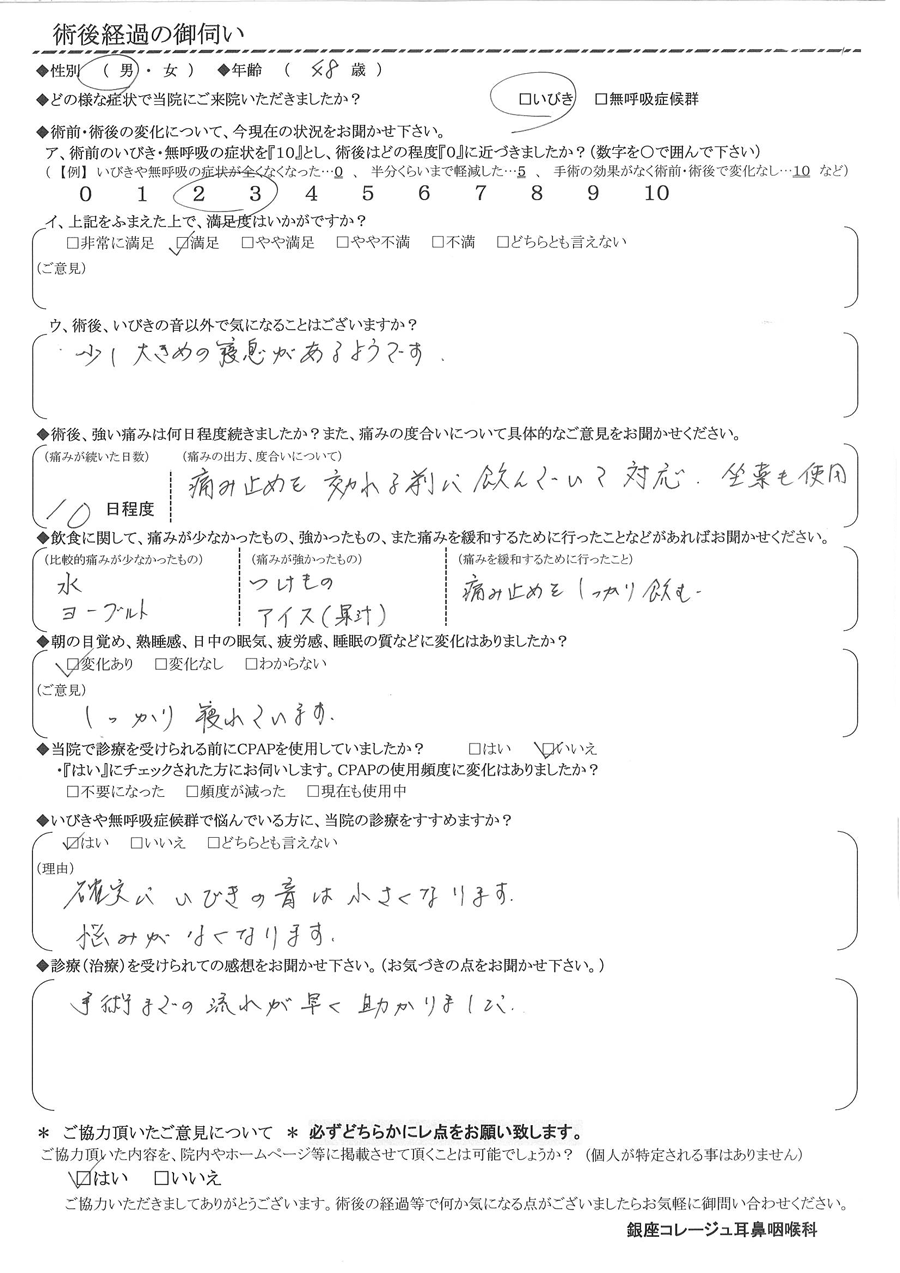 術後経過の御伺い
◆性別 ( 男 ・ 女 ) ◆年齢 ( 48 歳 )
◆どの様な症状で当院にご来院いただきましたか? □いびき □無呼吸症候群
◆術前・術後の変化について、今現在の状況をお聞かせ下さい。
ア、術前のいびき・無呼吸の症状を『10』とし、術後はどの程度『0』に近づきましたか?(数字を〇で囲んで下さい)
(【例】いびきや無呼吸の症状が全くなくなった…0 、 半分くらいまで軽減した…5 、 手術の効果がなく術前・術後で変化なし…10 など)
0 1 2 3 4 5 6 7 8 9 10
イ、上記をふまえた上で、満足度はいかがですか?
□非常に満足 ☑満足 □やや満足 □やや不満 □不満 □どちらとも言えない
(ご意見)
ウ、術後、いびきの音以外で気になることはございますか?
少し大きめの寝息があるようです.
◆術後、強い痛みは何日程度続きましたか?また、痛みの度合いについて具体的なご意見をお聞かせください。
(痛みが続いた日数) (痛みの出方、度合いについて)
痛み止めを 効れる前に 飲んでいて 対応. 坐薬も使用
10 日程度
◆飲食に関して、痛みが少なかったもの、強かったもの、また痛みを緩和するために行ったことなどがあればお聞かせください。
(比較的痛みが少なかったもの) (痛みが強かったもの) (痛みを緩和するために行ったこと)
水 つけもの 痛み止めを しっかり飲む.
ヨーグルト アイス(果汁)
◆朝の目覚め、熟睡感、日中の眠気、疲労感、睡眠の質などに変化はありましたか?
☑変化あり □変化なし □わからない
(ご意見)
しっかり 寝れています.
◆当院で診療を受けられる前にCPAPを使用していましたか? □はい ☑いいえ
・『はい』にチェックされた方にお伺いします。CPAPの使用頻度に変化はありましたか?
□不要になった □頻度が減った □現在も使用中
◆いびきや無呼吸症候群で悩んでいる方に、当院の診療をすすめますか?
☑はい □いいえ □どちらとも言えない
(理由)
確実に いびきの音は 小さくなります.
悩みが なくなります.
◆診療(治療)を受けられての感想をお聞かせ下さい。(お気づきの点をお聞かせ下さい。)
手術までの 流れが 早く 助かりました.
＊ ご協力頂いたご意見について ＊ 必ずどちらかにレ点をお願い致します。
ご協力頂いた内容を、院内やホームページ等に掲載させて頂くことは可能でしょうか? (個人が特定される事はありません)
☑はい □いいえ
ご協力いただきましてありがとうございます。術後の経過等で何か気になる点がございましたらお気軽に御問い合わせください。
銀座コレージュ耳鼻咽喉科